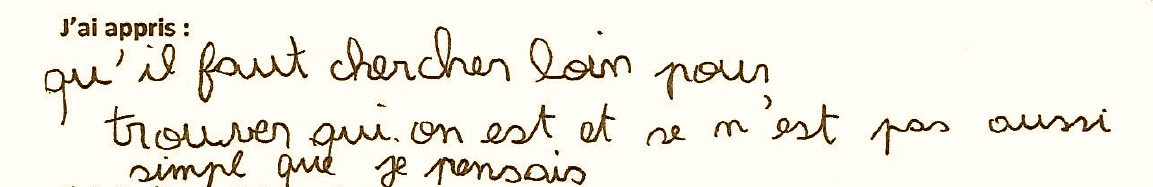 J'ai appris :
qu'il faut chercher loin pour
trouver qui on est et se n'est pas aussi
simpl que je pensais